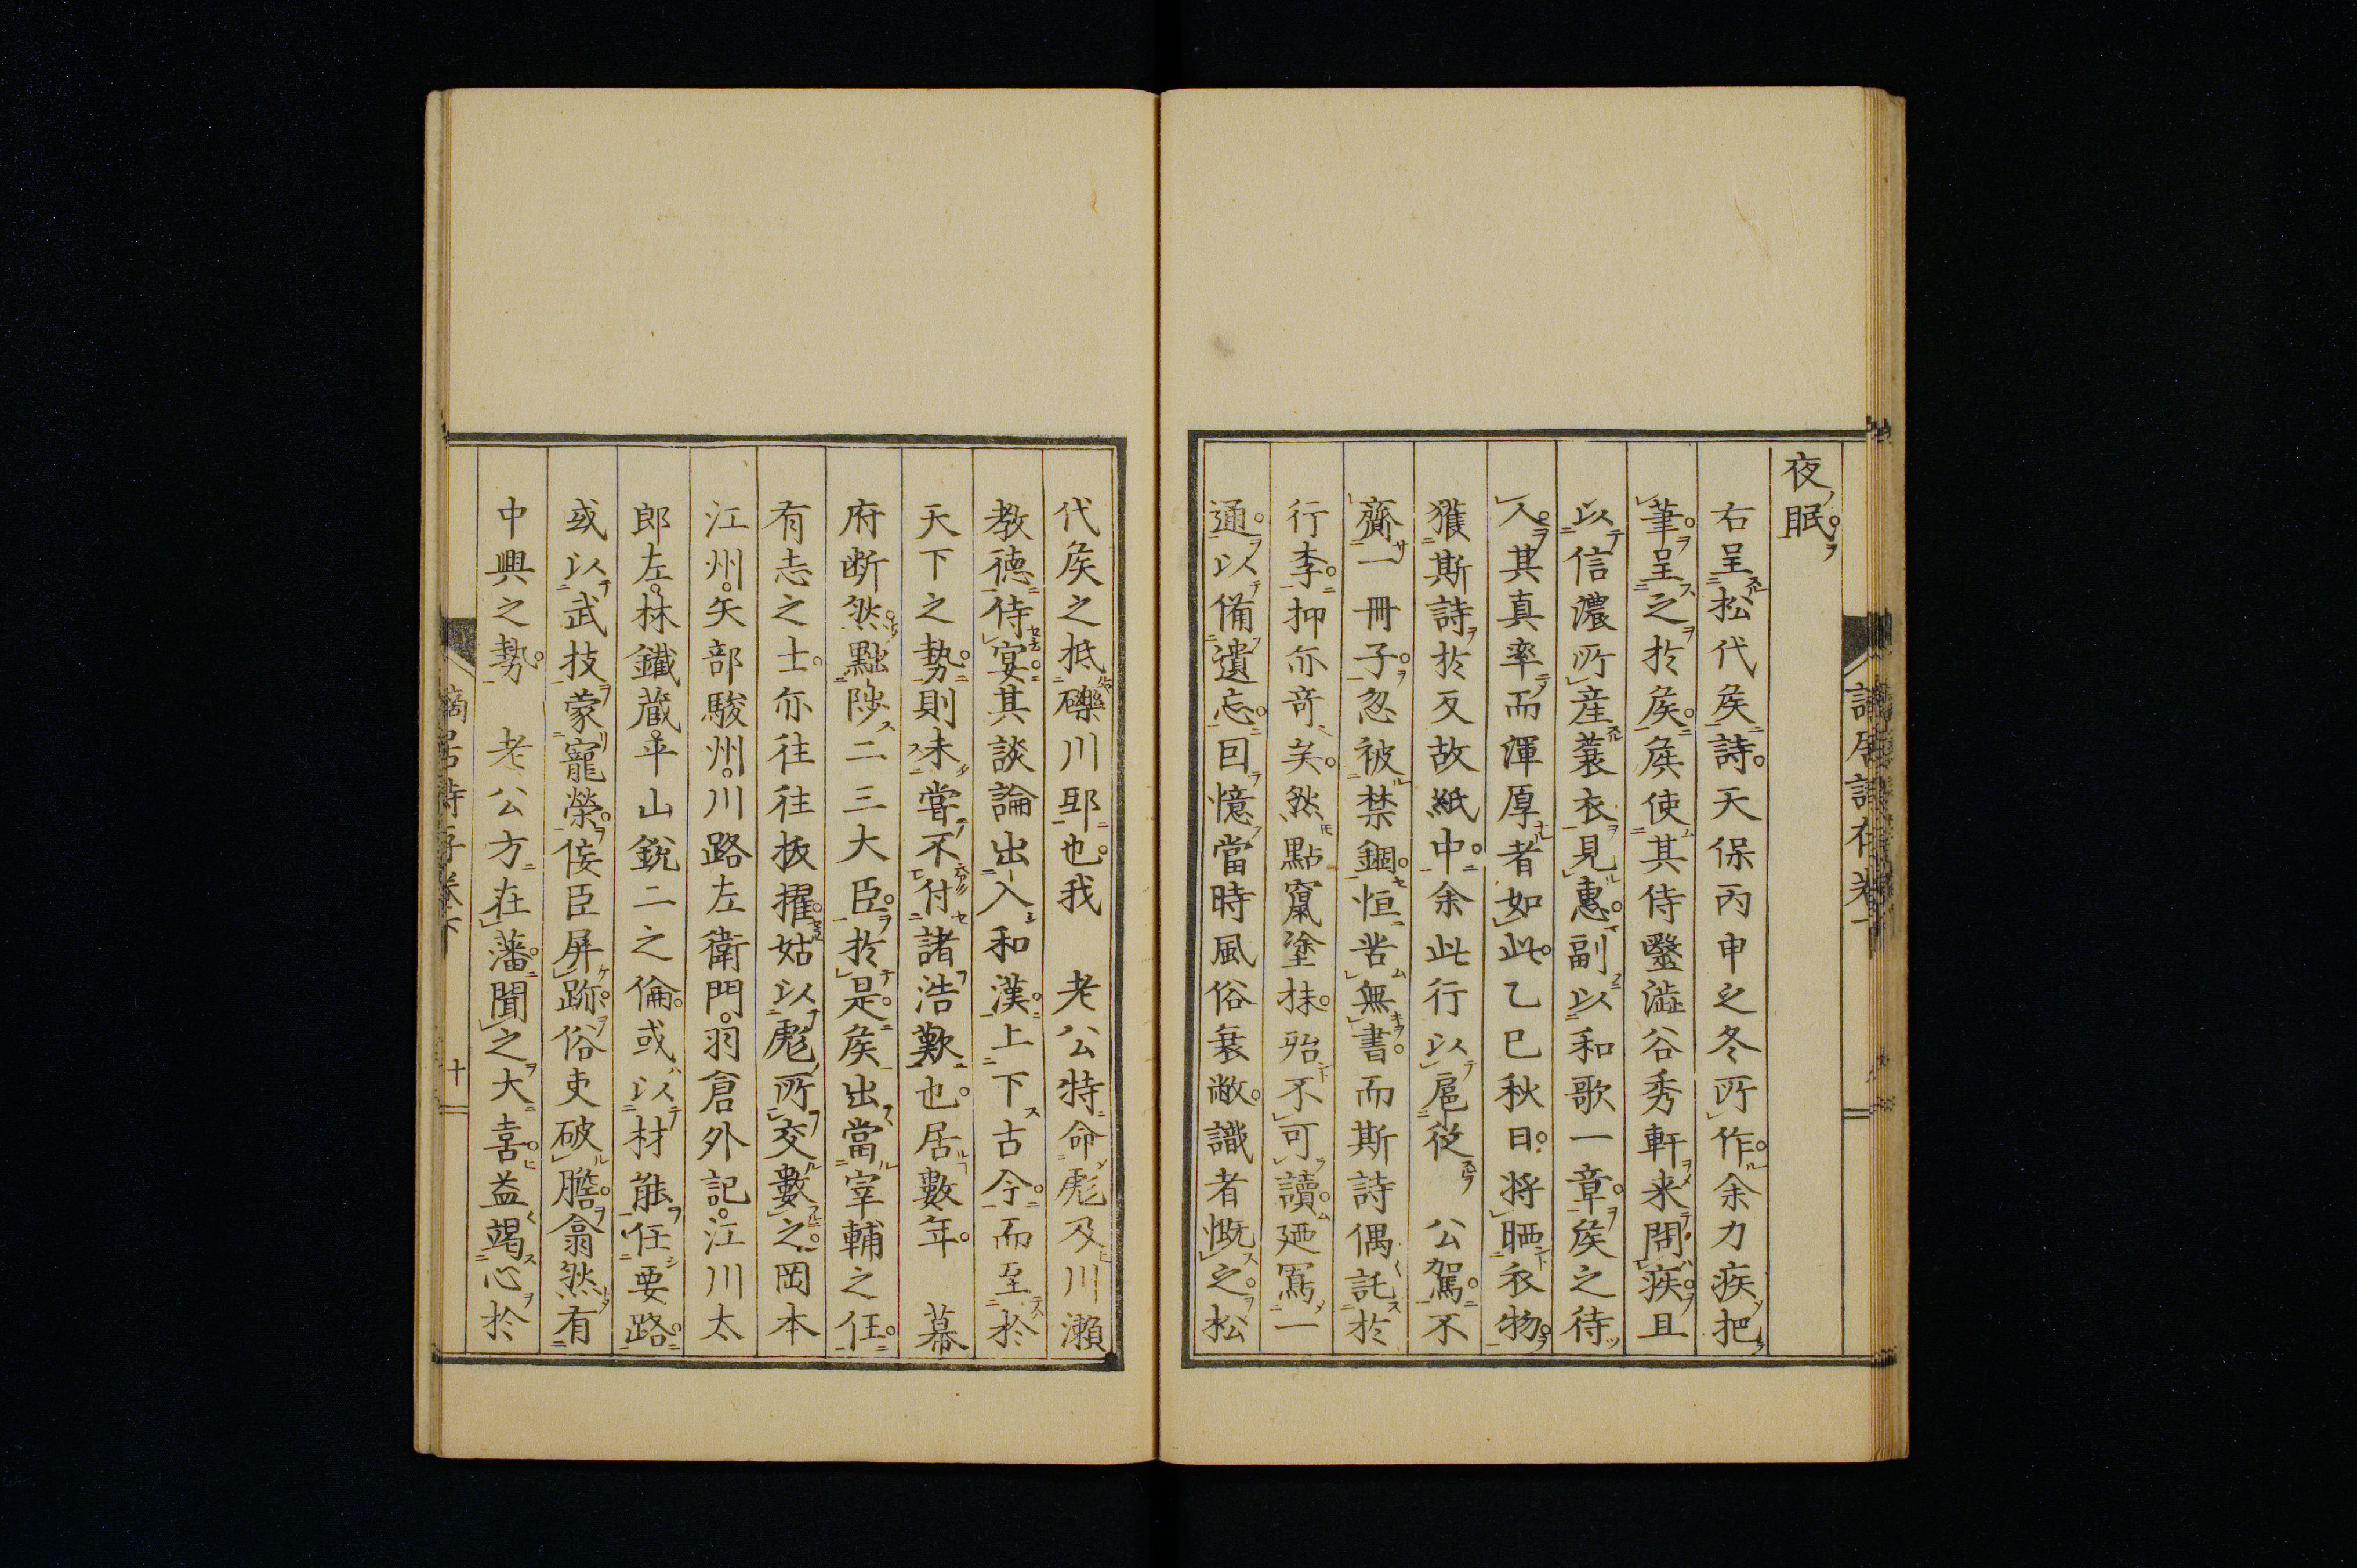 夜眠。
右呈松代矦詩。天保丙申之冬所作。余力疾把
筆。呈之於矦。矦使其侍毉澁谷秀軒来問疾。且
以信濃所産蓑衣見惠。副以和歌一章。矦之待
人。其真率而渾厚者如此。乙巳秋日。将晒衣物。
獲斯詩於反故紙中。余此行以扈従　公駕。不
齎一冊子。忽被禁錮。恒苦無書。而斯詩偶託於
行李。抑亦奇矣。然點竄塗抹。殆不可讀。廼冩一
通。以備遺忘。回憶當時風俗衰敝。識者慨之。松
代矦之抵礫川邸也。我　老公特命彪及川瀬
教德侍宴。其談論出入和漢。上下古今。而至於
天下之勢。則未甞不付諸浩歎也。居數年。　幕
府断然黜陟二三大臣。於是矦出當宰輔之任。
有志之士。亦往往抜擢。姑以彪所交數之。岡本
江州。矢部駿州。川路左衛門。羽倉外記。江川太
郎左。林鐵蔵。平山鋭二之倫。或以材能任要路。
或以武技蒙寵榮。佞臣屏跡。俗吏破膽。翕然有
中興之勢。　老公方在藩。聞之大喜。益竭心於
謫居詩存巻下　十